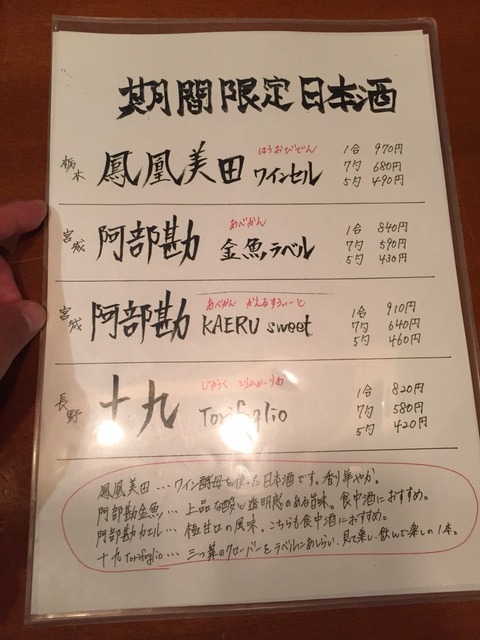 期間限定日本酒
栃木 鳳凰美田 ほうおうびでん ワインセル 1合 970円
7勺 680円
5勺 490円
宮城 阿部勘 あべかん 金魚ラベル 1合 840円
7勺 590円
5勺 430円
宮城 阿部勘 あべかん かえるすうぃーと KAERU sweet 1合 910円
7勺 640円
5勺 460円
長野 十九 じゅうく Torifoglio 1合 820円
7勺 580円
5勺 420円
鳳凰美田…ワイン酵母を使った日本酒です。香り華やか。
阿部勘金魚…上品な酸と透明感のある旨味。食中酒におすすめ。
阿部勘カエル…極甘口の風味。こちらも食中酒におすすめ。
十九Torifoglio…三つ葉のクローバーをラベルにあしらい、見て楽し、飲んで楽しの1本。